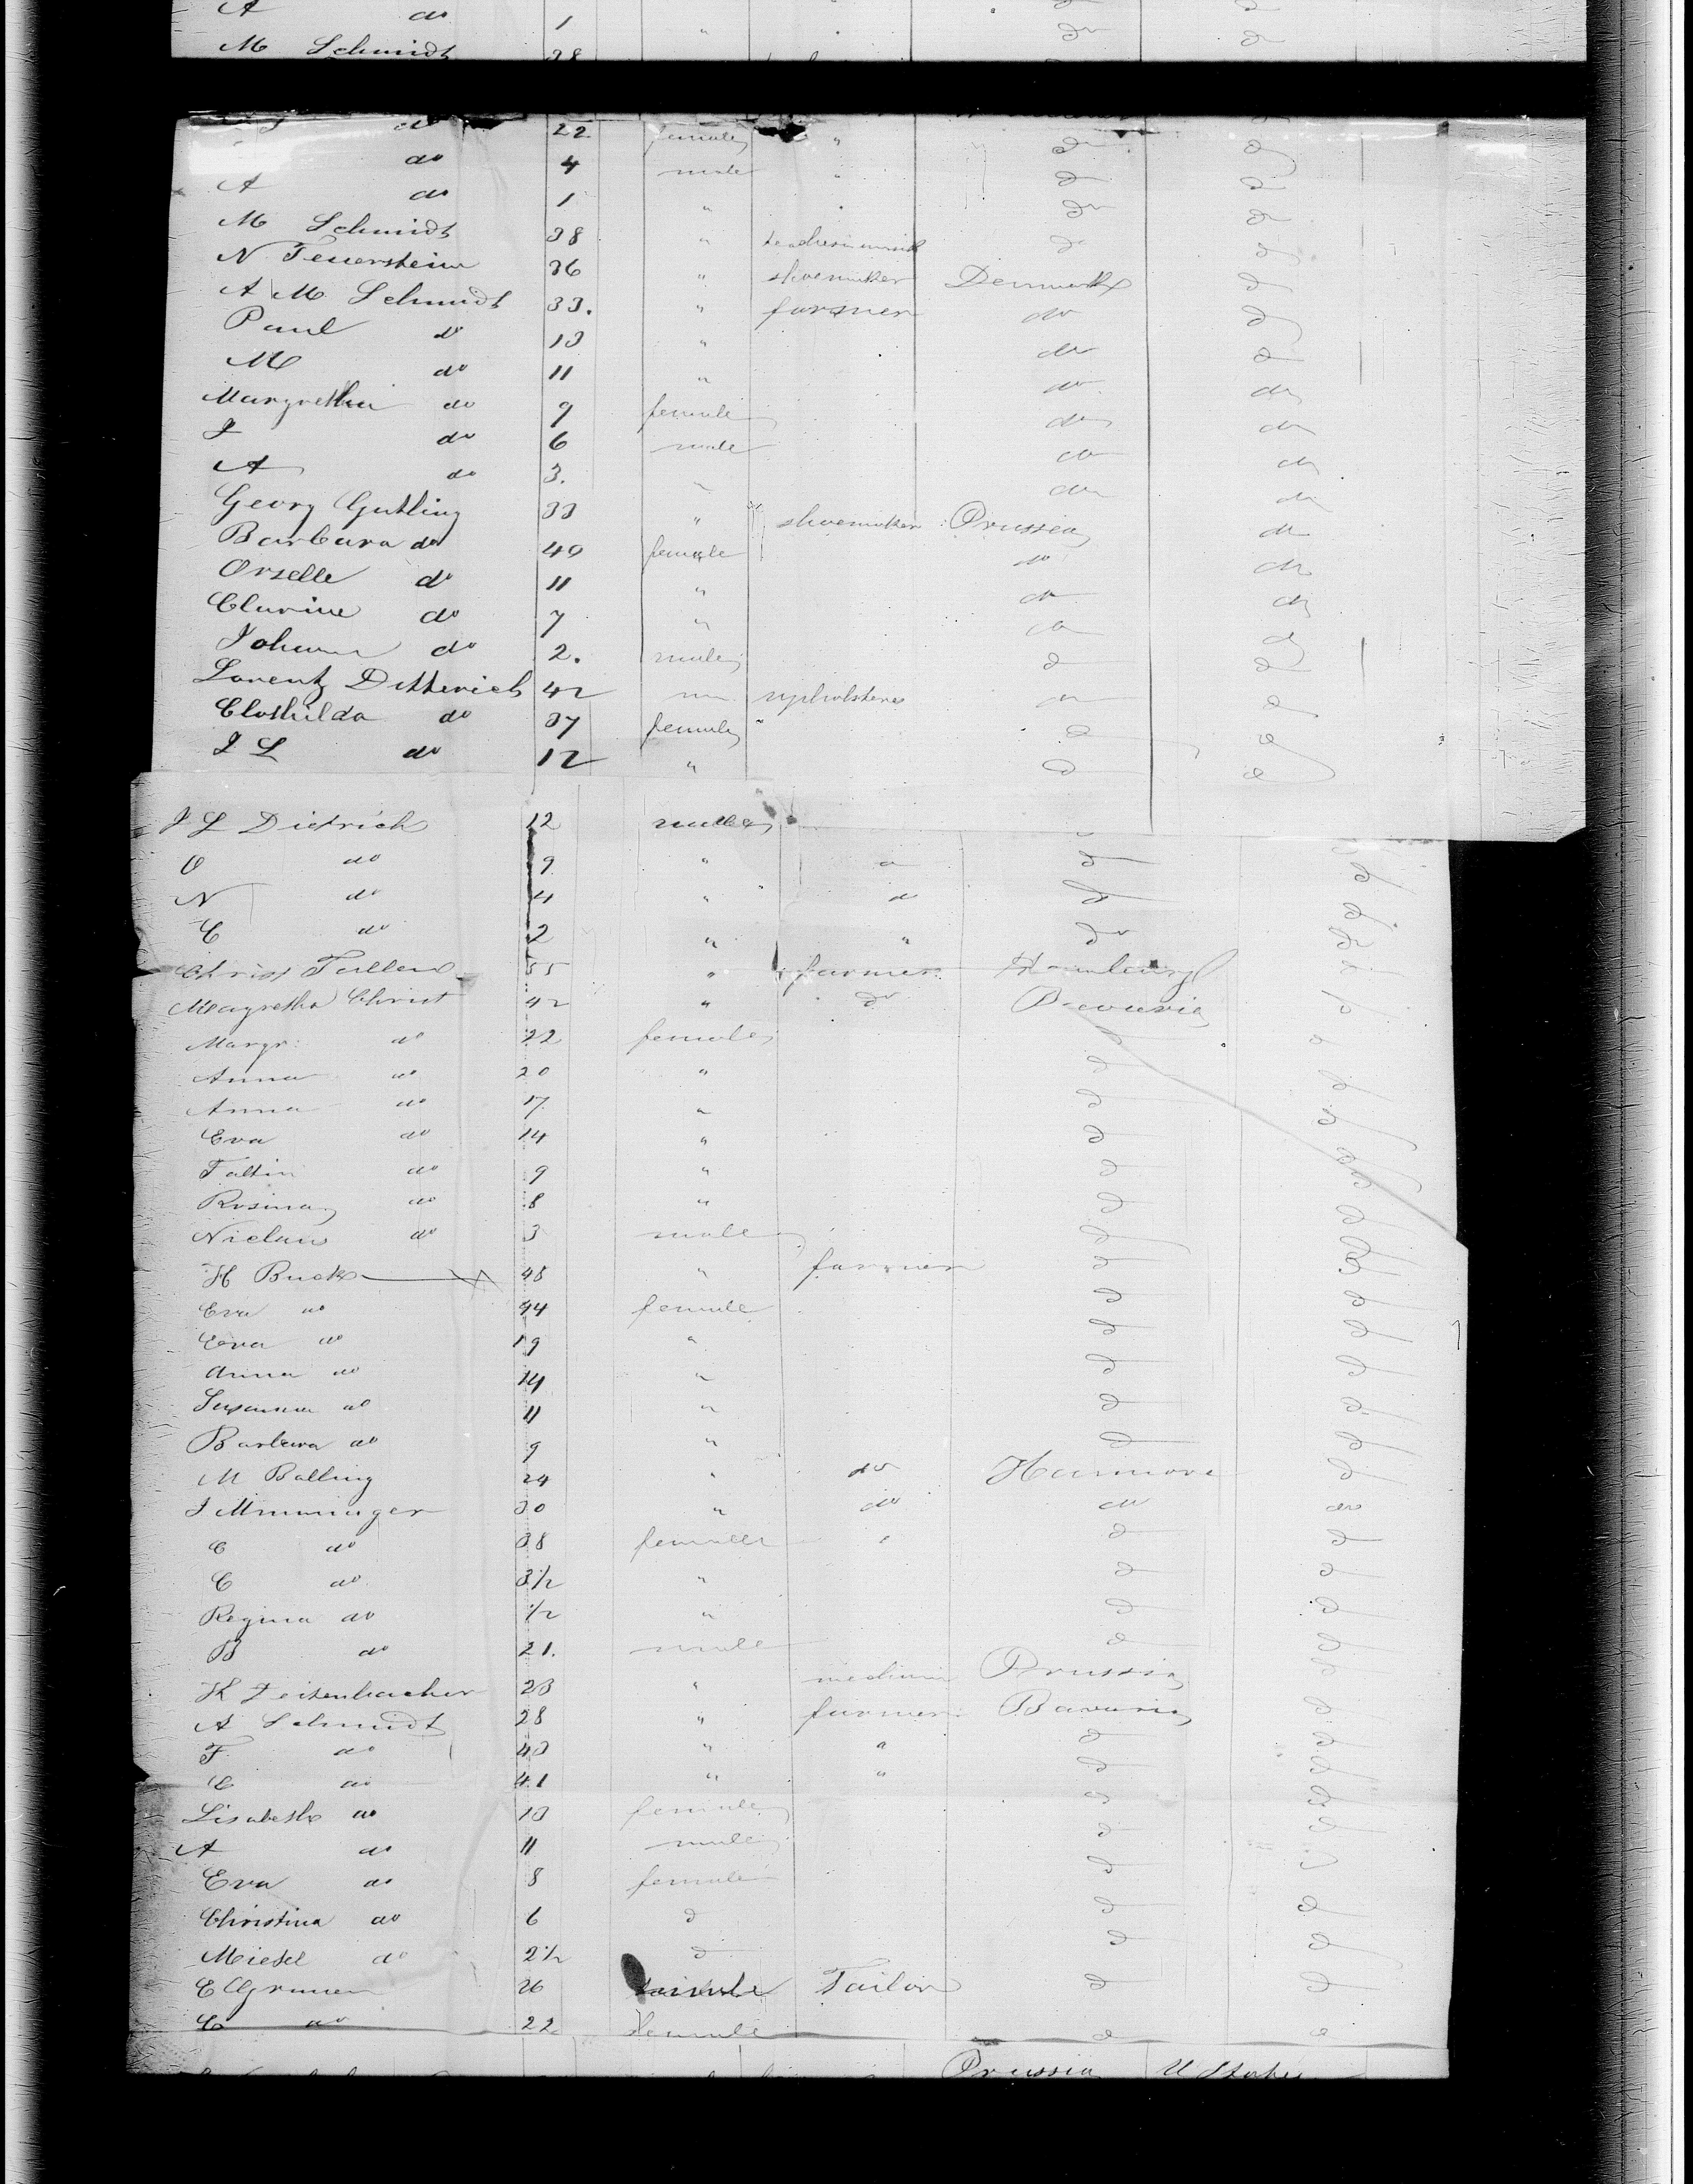 A do 1 " do do
M Schmidt 38
do 22 female " do do
do 4 male " do do
A do 1 " do do
M Schmidt 38 " do do
N Feuerstein 36 " shoemaker Denmark do
A M Schmidt 33. " farmer do do
Paul do 13 " do do
M do 11 " do do
Margretha do 9 female do do
J do 6 male do do
A do 3. " do do
Georg Gutling 33 " shoemaker Prussia do
Barbara do 40 female do do
Orselle do 11 " do do
Clarine do 7 " do do
Johann do 2. male do do
Lorentz Ditterich 42 m upholsterer do do
Clothilda do 37 female " do do
J L do 12 " do do
J L Dietrich 12 male
O do 9 " " do do
N do 4 " do do do
C do 2 " " do do
Christ Tullen 55 " farmer Hamburg do
Magretha Christ 42 " do Bavaria do
Margr: do 22 female do do
Anna do 20 " do do
Anna do 17 " do do
Eva do 14 " do do
Faltin do 9 " do do
Rosina do 8 " do do
Niclaus do 3 male do do
H Buck 48 " farmer do do
Eva do 44 female do do
Eva do 19 " do do
Anna do 14 " do do
Susanna do 11 " do do
Barbara do 9 " do do
M Balling 24 " do Hannover do
J Mmminger 30 " do do do
C do 38 female " do do
C do 3 1/2 " do do
Regina do 1/2 " do do
B do 21. male do do
H Zeitenbacher 23 " Prussia do
A Schmidt 28 " farmer Bavaria do
F do 43 " " do do
C do 41 " " do do
Lisabeth do 13 female do do
A do 11 male do do
Eva do 8 female do do
Christina do 6 do do do
Miesel do 2 1/2 do do do
E Grunen 26 Tailor do do
C do 22 Female do do
Prussia U States